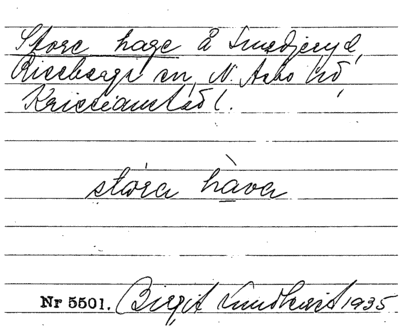 Store hage å Smedjeryd,
Risebergs sn, N. Åsbo hd,
Kristianstads l.
stóra hàva
Nr 5501. Birgit Lundkvist 1935